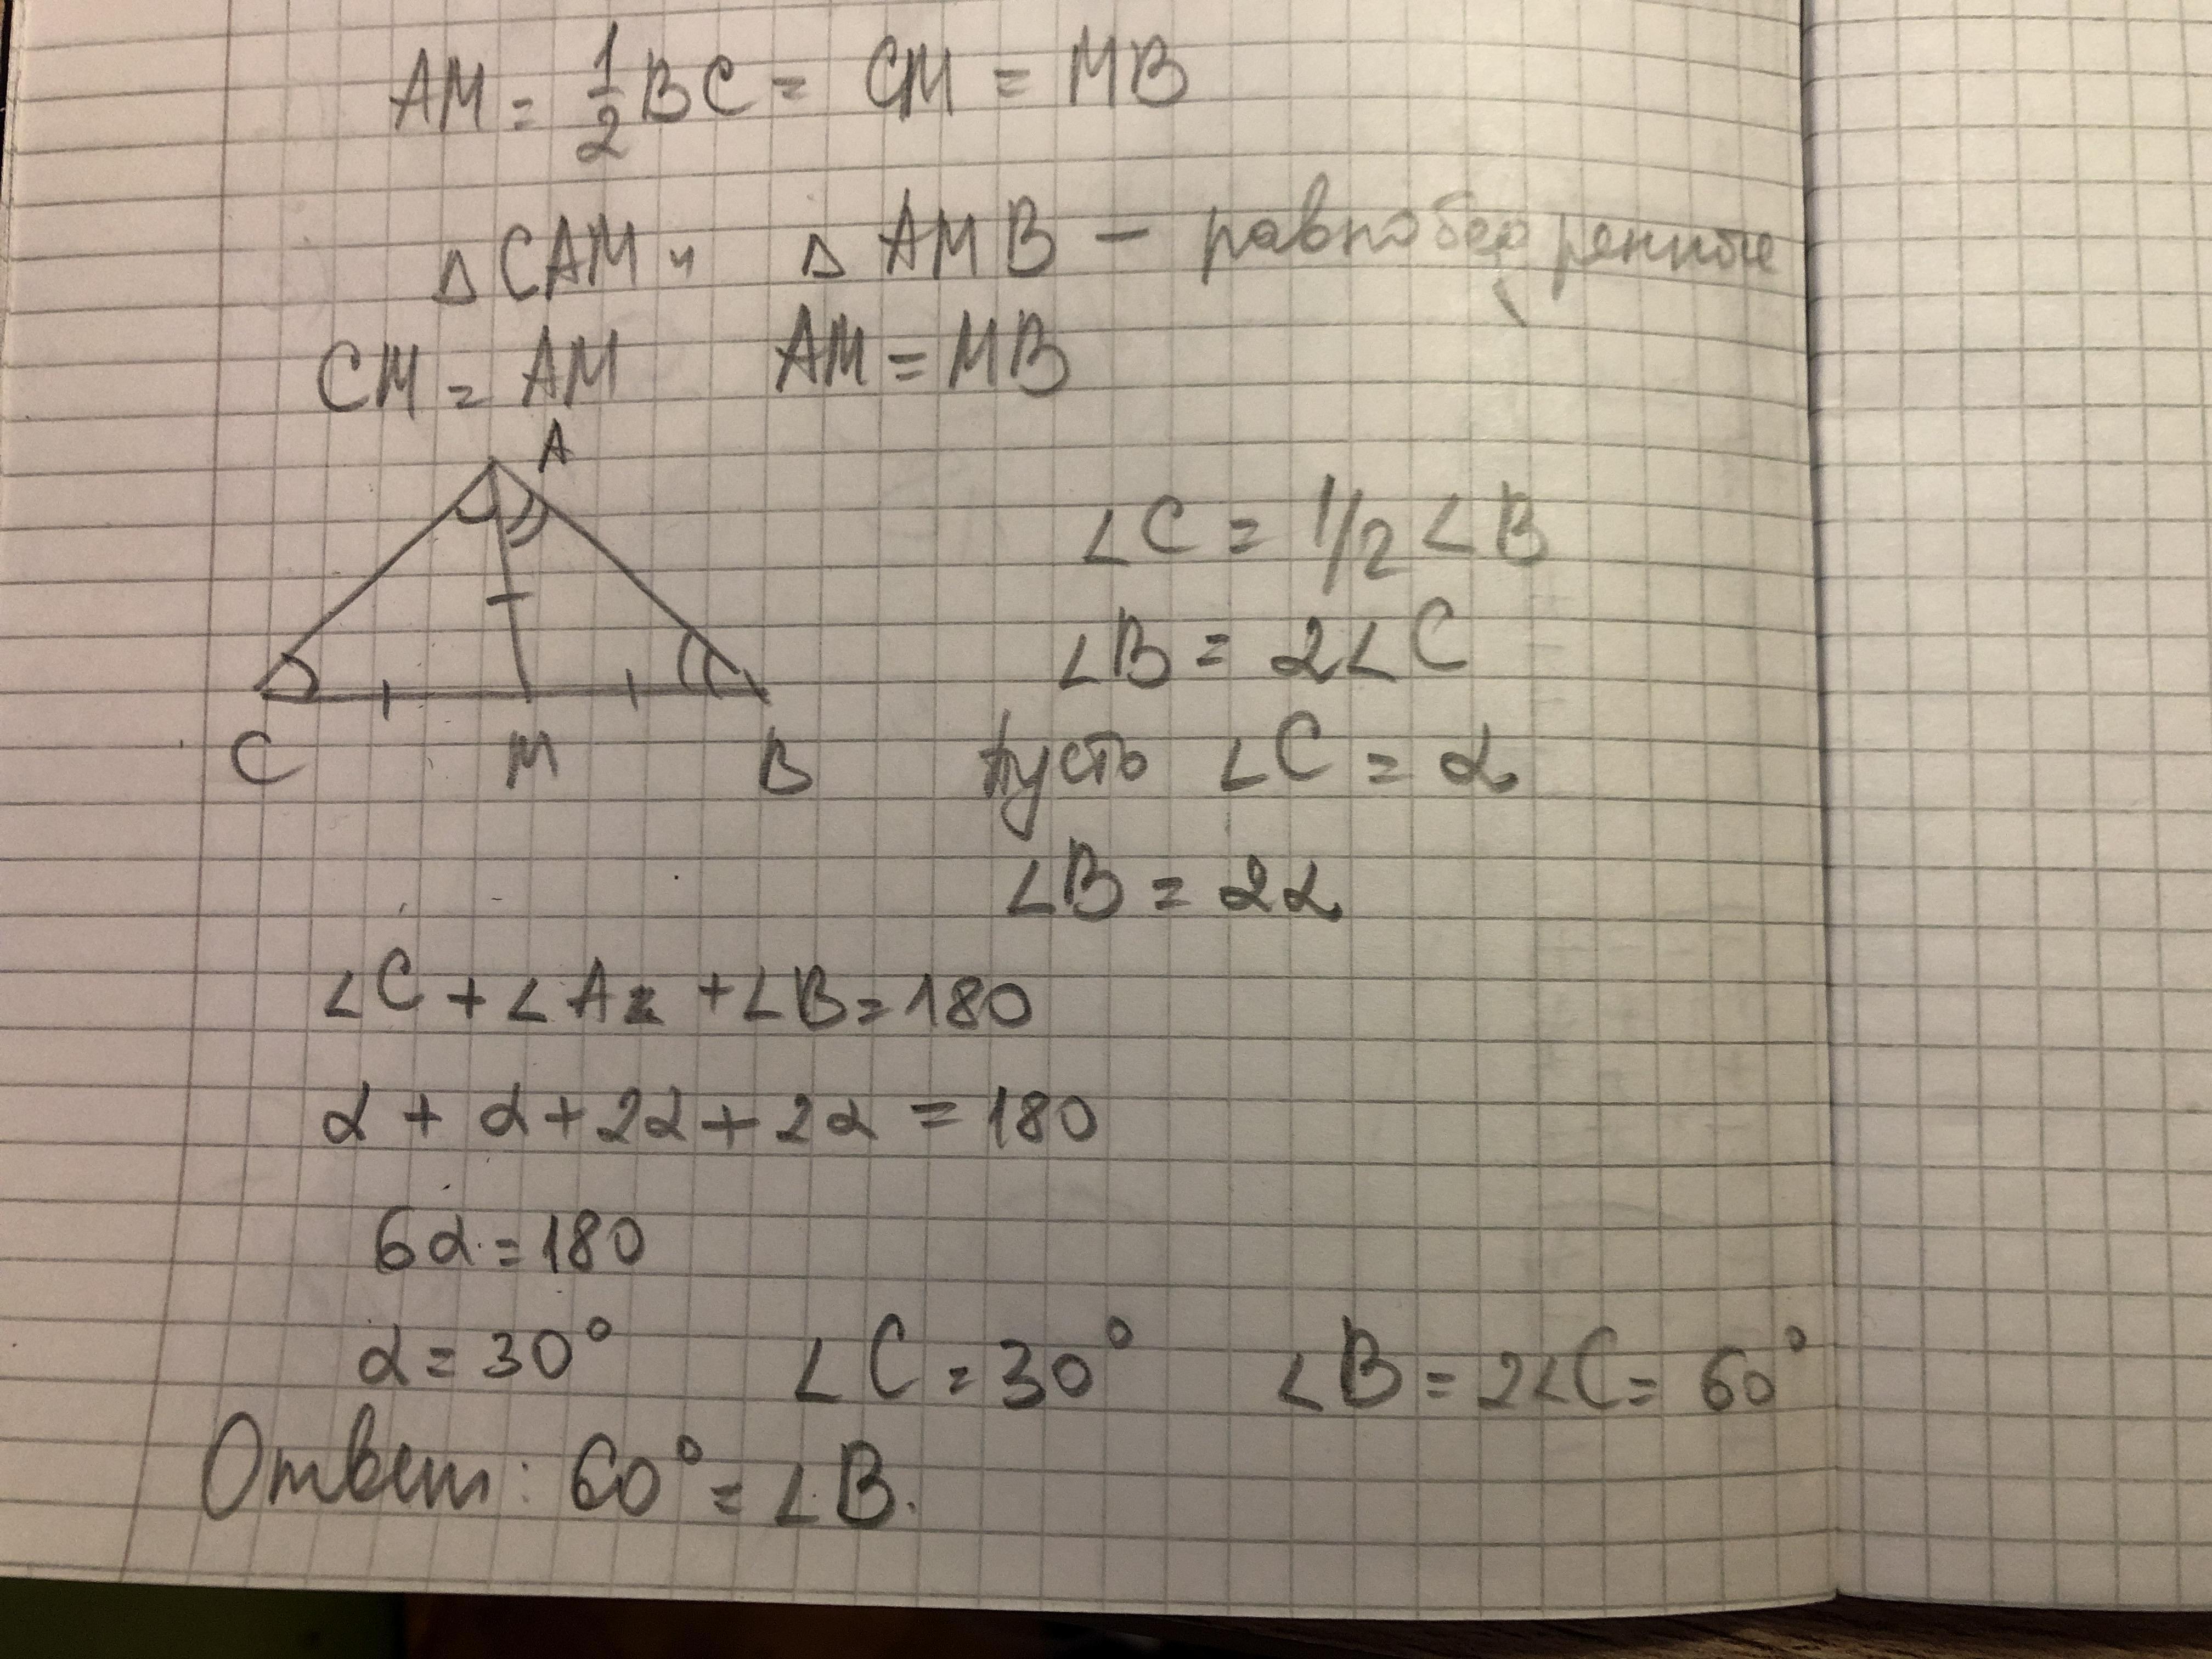 AM = 1/2 BC = CM = MB
Δ CAM и Δ AMB — равнобедренные
CM = AM AM = MB
A
C M B
∠C = 1/2 ∠B
∠B = 2∠C
пусть ∠C = α
∠B = 2α
∠C + ∠A + ∠B = 180
α + α + 2α + 2α = 180
6α = 180
α = 30° ∠C = 30° ∠B = 2∠C = 60°
Ответ: 60° = ∠B.